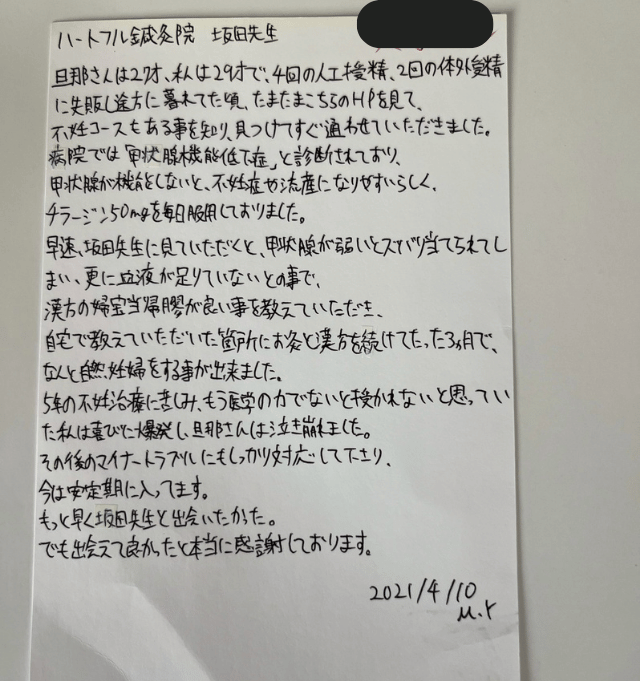 ハートフル鍼灸院 坂田先生
旦那さんは27才、私は29才で、4回の人工授精、2回の体外受精
に失敗し途方に暮れてた頃、たまたまこちらのHPを見て、
不妊コースもある事を知り、見つけてすぐ通わせていただきました。
病院では「甲状腺機能低下症」と診断されており、
甲状腺が機能しないと、不妊症や流産になりやすいらしく、
チラージン50mgを毎日服用しておりました。
早速、坂田先生に見ていただくと、甲状腺が弱いとズバリ当てられてし
まい、更に血液が足りていないとの事で、
漢方の婦宝当帰膠が良い事を教えていただき、
自宅で教えていただいた箇所にお灸と漢方を続けてたった3ヵ月で、
なんと自然妊娠をする事が出来ました。
5年の不妊治療に苦しみ、もう医学の力でないと授かれないと思ってい
た私は喜びに爆発し、旦那さんは泣き崩れました。
その後のマイナートラブルにもしっかり対応して下さり、
今は安定期に入ってます。
もっと早く坂田先生と出会いたかった。
でも出会えて良かったと本当に感謝しております。
2021/4/10
M.Y